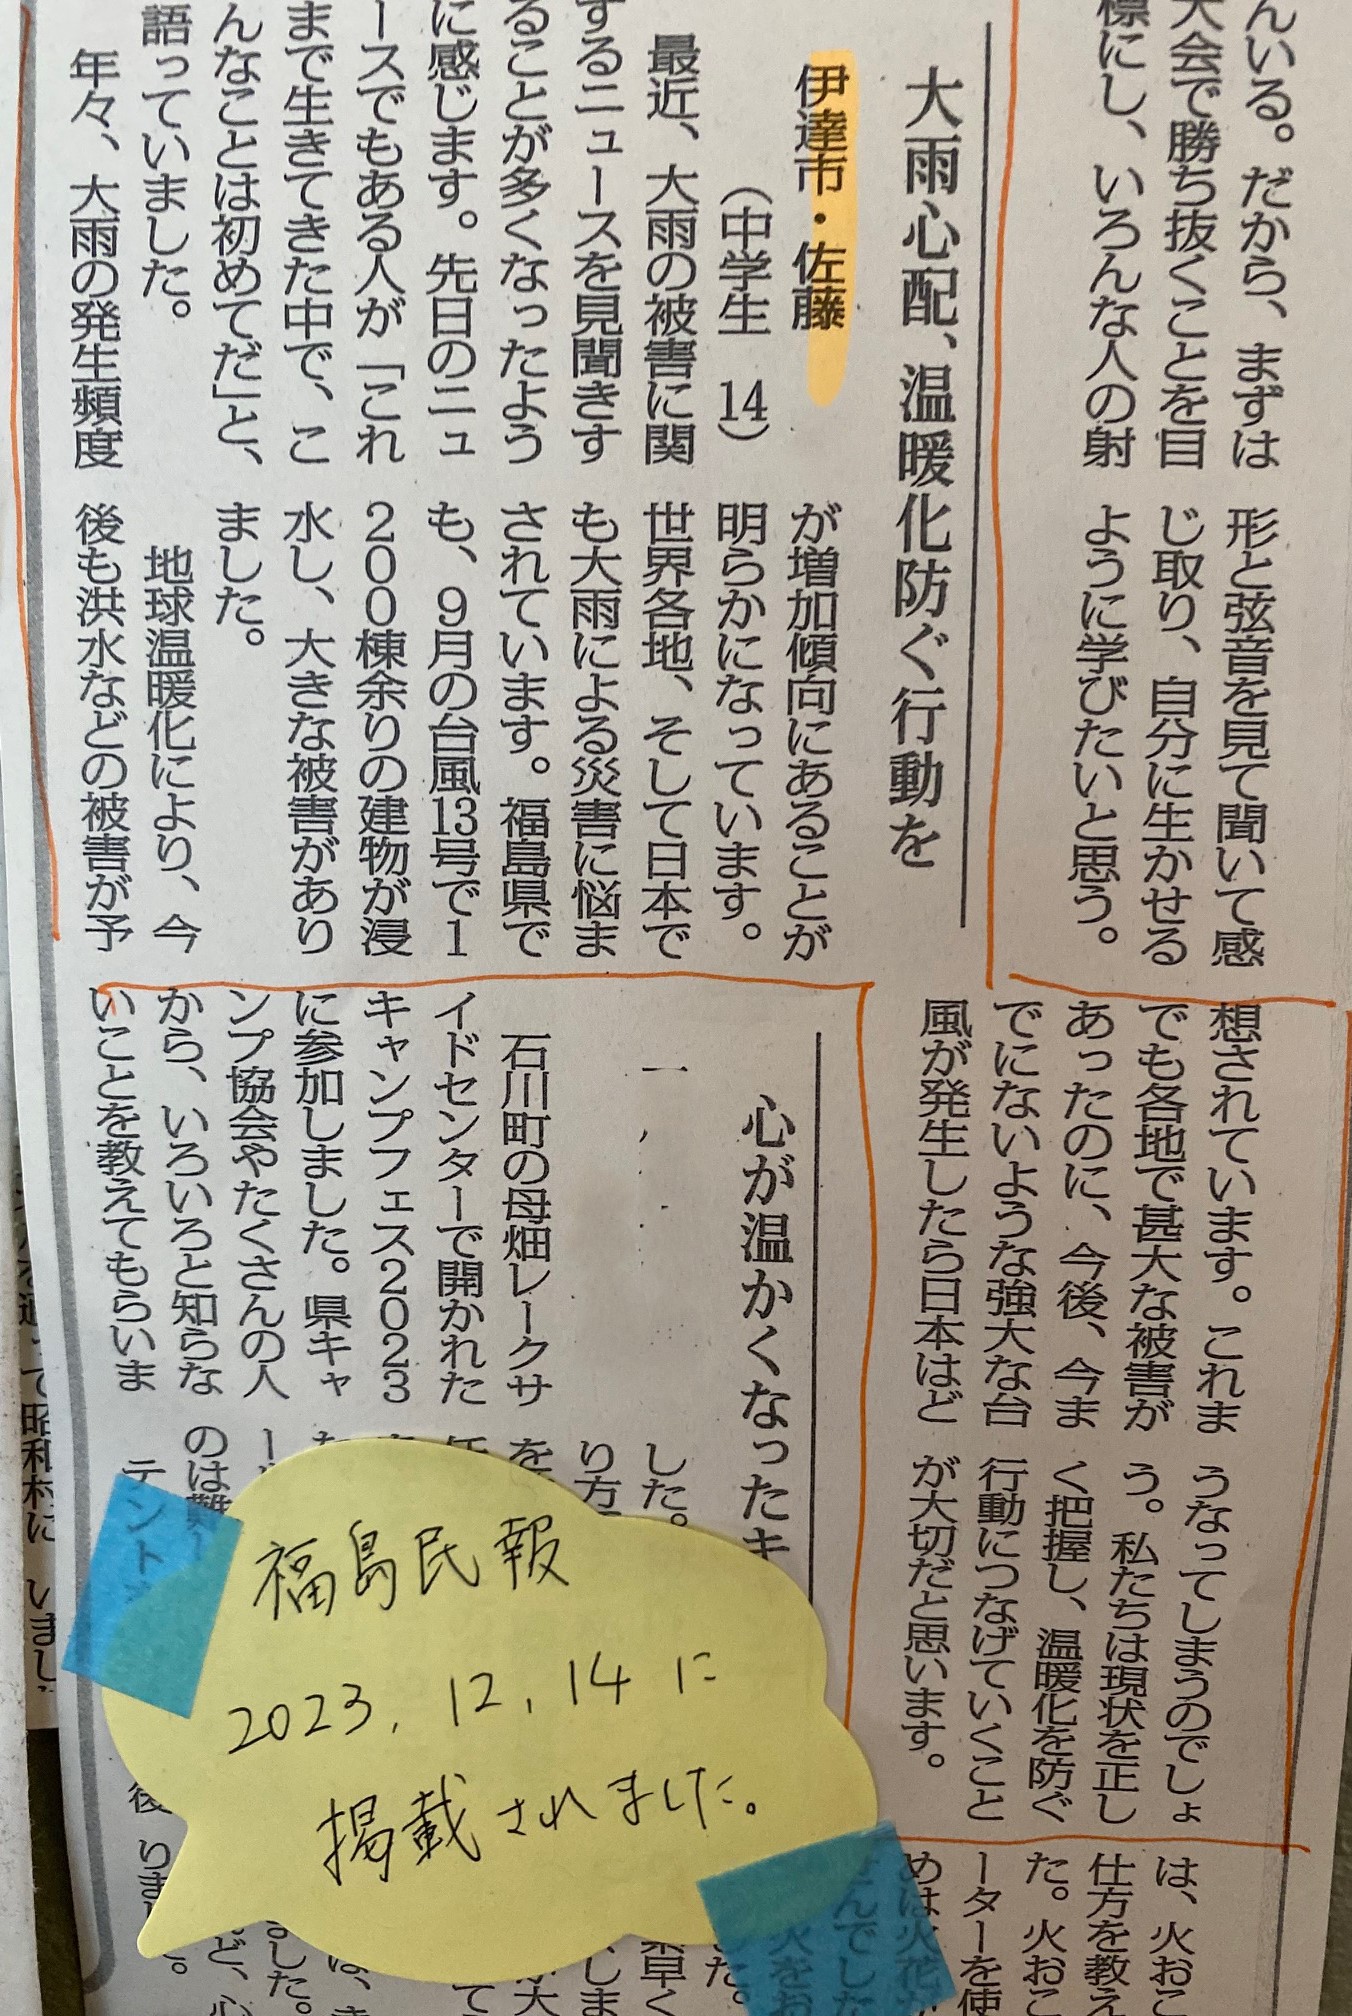 んいる。だから、まずは
大会で勝ち抜くことを目
標にし、いろんな人の射
形と弦音を見て聞いて感
じ取り、自分に生かせる
ように学びたいと思う。
大雨心配、温暖化防ぐ行動を
伊達市・佐藤
(中学生 14)
最近、大雨の被害に関
するニュースを見聞きす
ることが多くなったよう
に感じます。先日のニュ
ースでもある人が「これ
まで生きてきた中で、こ
んなことは初めてだ」と、
語っていました。
年々、大雨の発生頻度
が増加傾向にあることが
明らかになっています。
世界各地、そして日本で
も大雨による災害に悩ま
されています。福島県で
も、9月の台風13号で1
200棟余りの建物が浸
水し、大きな被害があり
ました。
地球温暖化により、今
後も洪水などの被害が予
想されています。これま
でも各地で甚大な被害が
あったのに、今後、今ま
でにないような強大な台
風が発生したら日本はど
うなってしまうのでしょ
う。私たちは現状を正し
く把握し、温暖化を防ぐ
行動につなげていくこと
が大切だと思います。
心が温かくなったキ
石川町の母畑レークサ
イドセンターで開かれた
キャンプフェス2023
に参加しました。県キャ
ンプ協会やたくさんの人
から、いろいろと知らな
いことを教えてもらいま
した。
り方
を
のは難
テント
は、火おこ
仕方を教え
た。火おこ
ーターを使
めは火花が
せんでした
火をお
した。
素早く
って昭和村に いまし
福島民報
2023.12.14に
掲載されました。